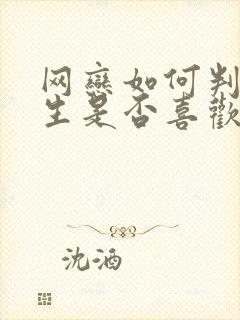 网戀如何判
生是否喜歡
沈酒